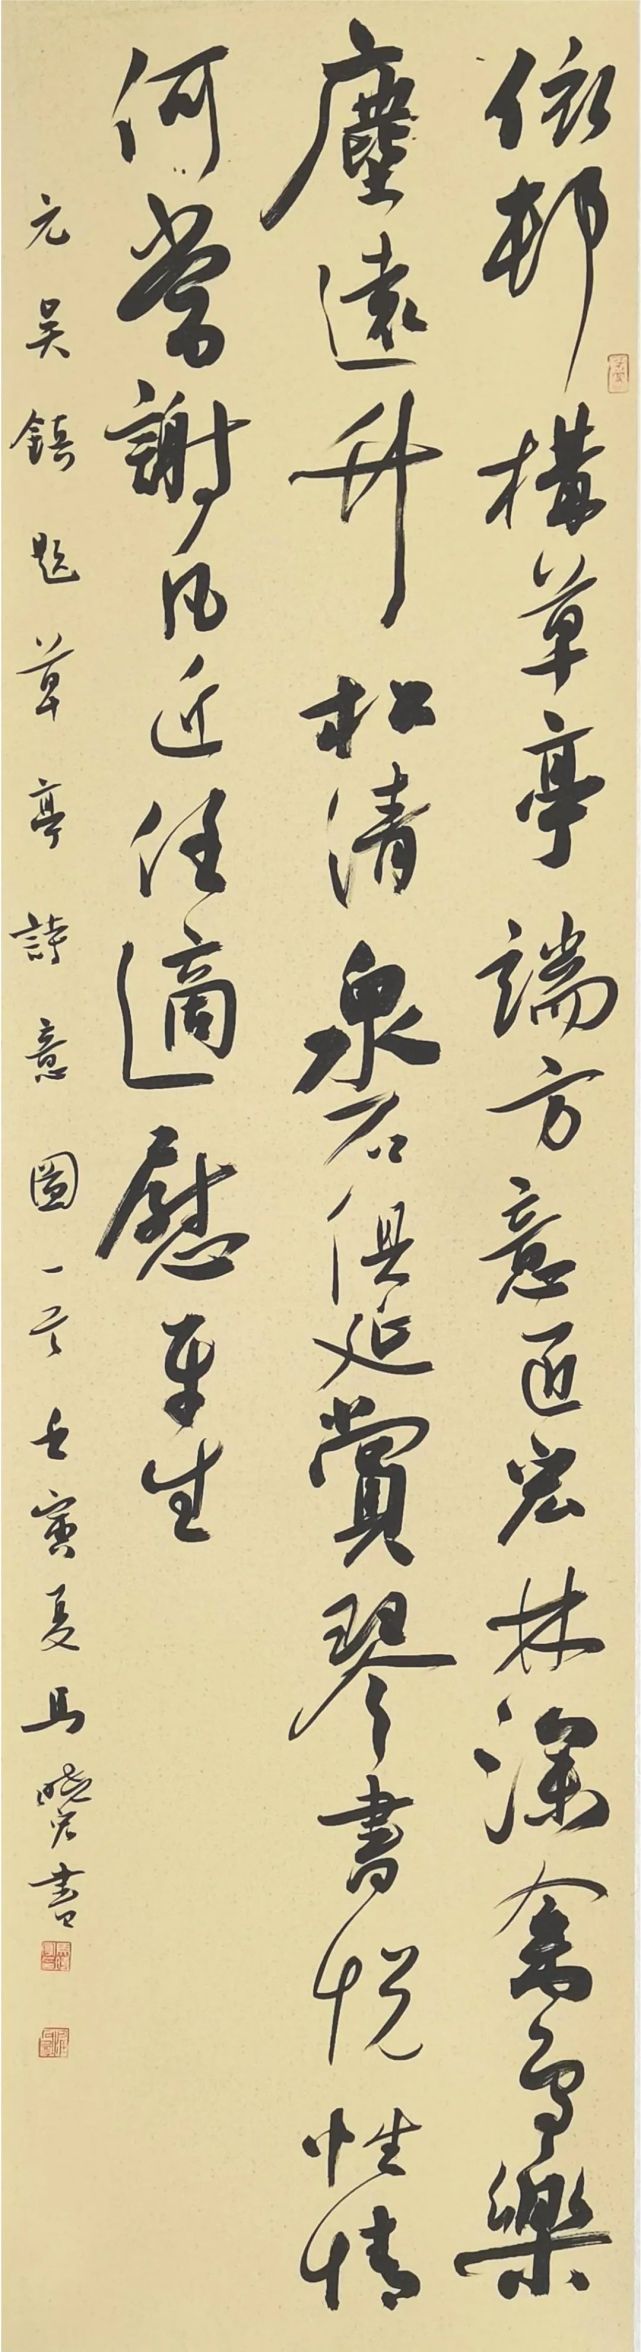 依邨構草亭端方意匠宏林深禽鳥樂
塵遠竹松清泉石俱延賞琴書悅性情
何當謝凡近任適慰平生
元吴鎮題草亭詩意圖一首壬寅夏馬曉君書